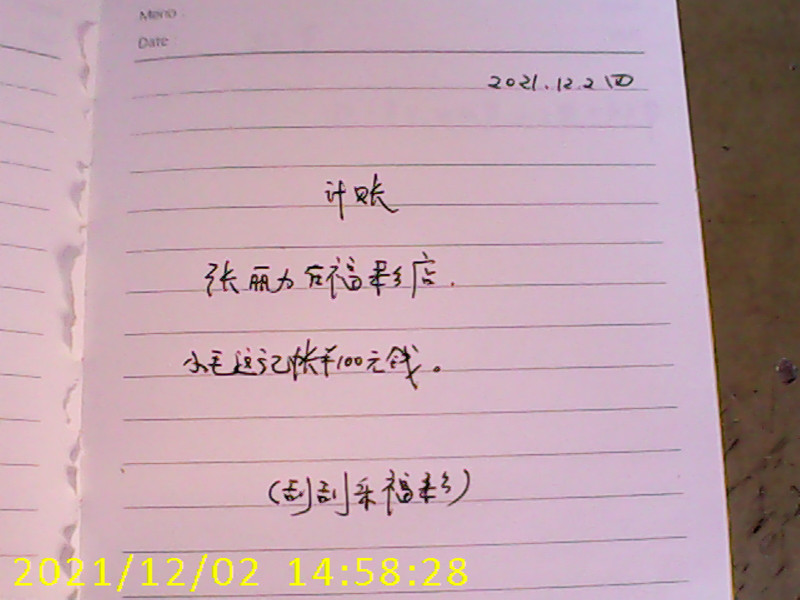 Memo
Date
2021.12.2 四
计账
张丽力在福彩店.
小毛这记帐¥100元钱。
(刮刮采福彩)
2021/12/02 14:58:28